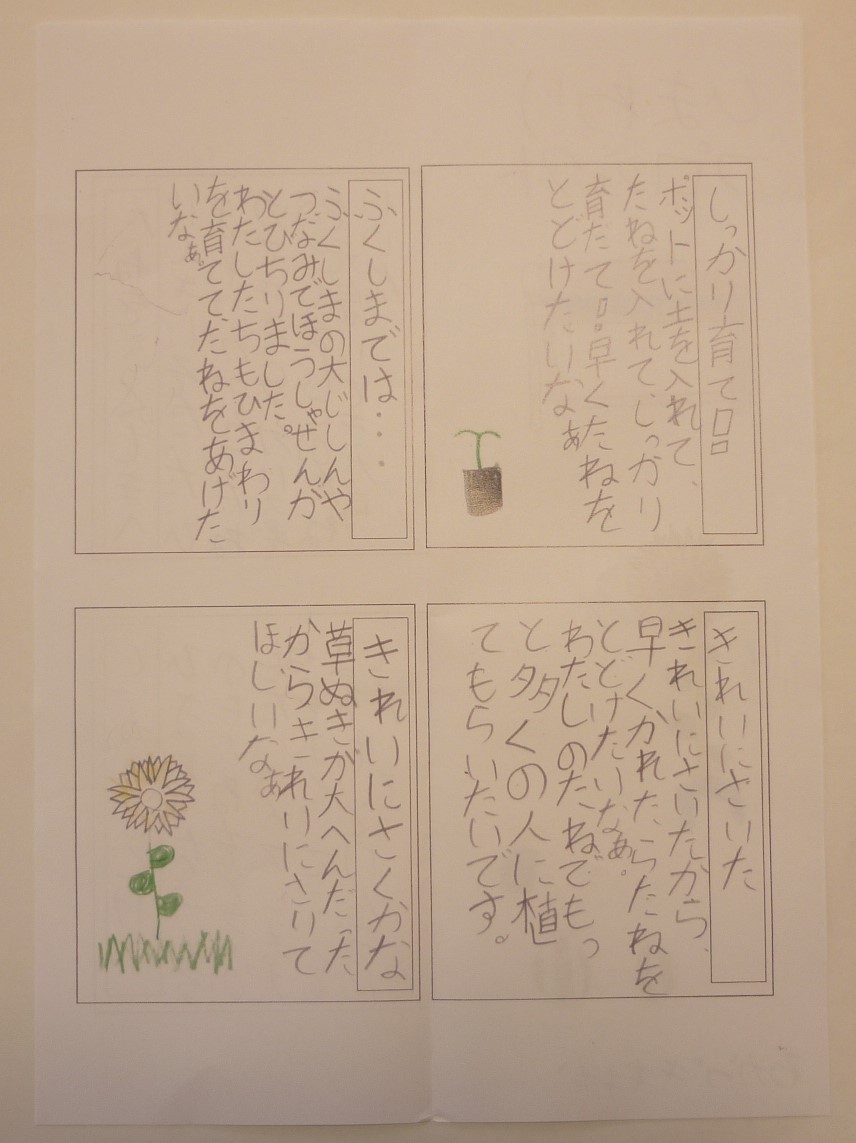 しっかり育て!!
ポットに土を入れて、
たねを入れて、しっかり
育だて!!早くたねを
とどけたいなぁ
ふくしまでは・・・
ふくしまの大じしんや
つなみでほうしゃせんが
とびちりました。
わたしたちもひまわり
を育てて、たねをあげた
いなぁ。
きれいにさいた
きれいにさいたから、
早くかれたらたねを
とどけたいなぁ。
わたしのたねでもっ
と多くの人に植
てもらいたいです。
きれいにさくかな
草ぬきが大へんだった
からきれいにさいて
ほしいなぁ